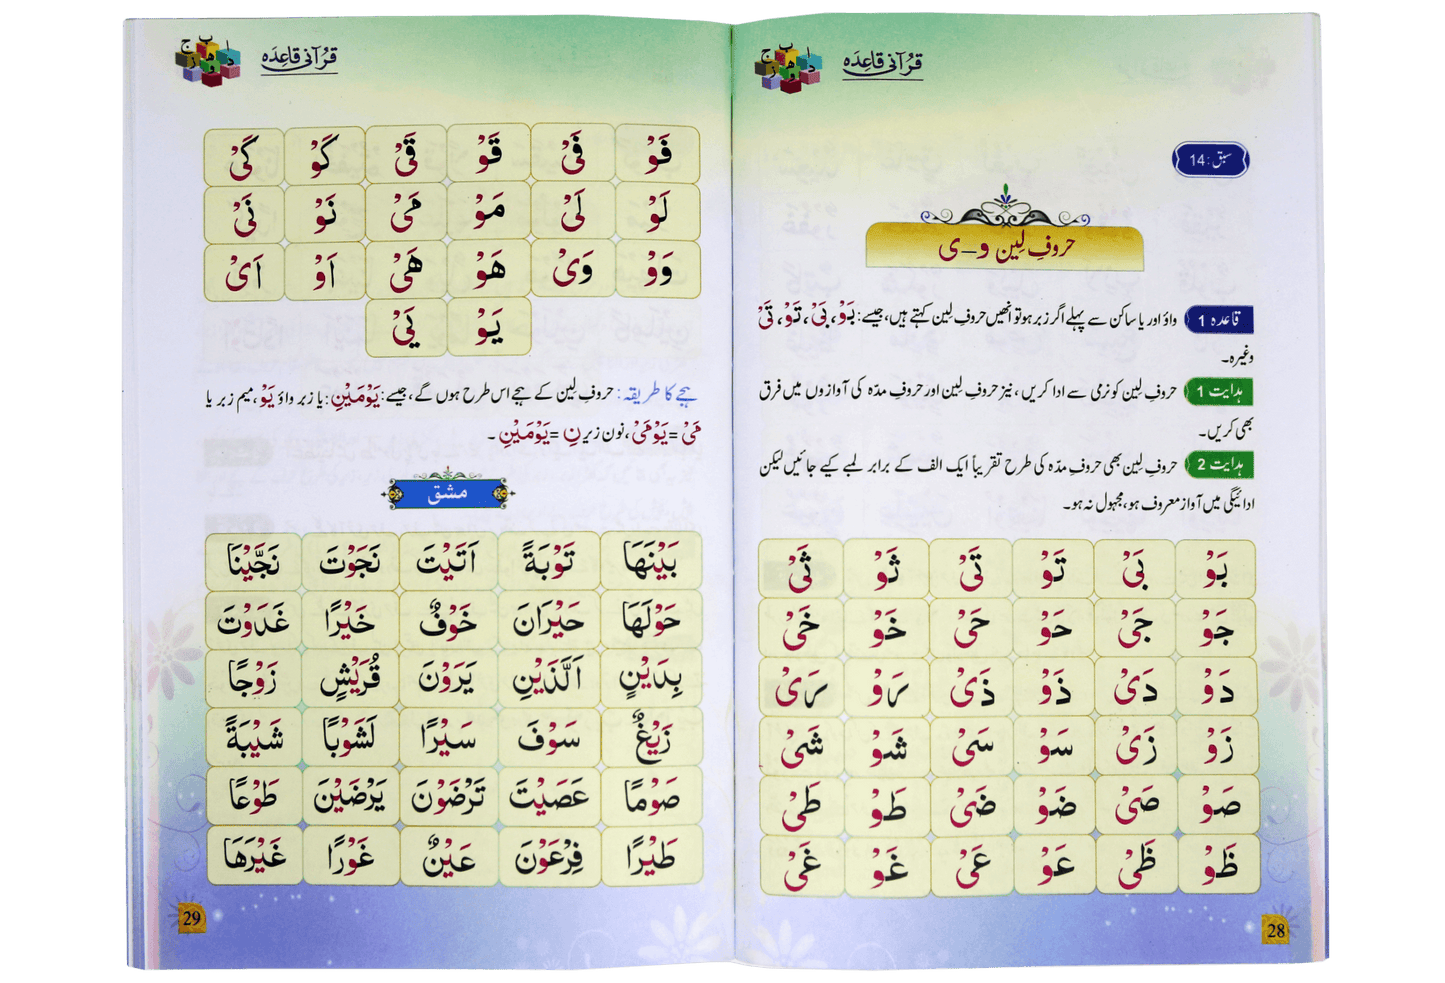 قرآنی قاعدہ
سبق: 14
حروفِ لِین و – ی
قاعدہ 1 واؤ اور یا ساکن سے پہلے اگر زبر ہو تو انھیں حروفِ لِین کہتے ہیں، جیسے: بَوْ، بَیْ، تَوْ، تَیْ
وغیرہ۔
ہدایت 1 حروفِ لِین کو نرمی سے ادا کریں، نیز حروفِ لِین اور حروفِ مدّہ کی آوازوں میں فرق
بھی کریں۔
ہدایت 2 حروفِ لِین بھی حروفِ مدّہ کی طرح تقریباً ایک الف کے برابر لمبے کیے جائیں لیکن
ادائیگی میں آواز معروف ہو، مجہول نہ ہو۔
بَوْ بَیْ تَوْ تَیْ ثَوْ ثَیْ
جَوْ جَیْ حَوْ حَیْ خَوْ خَیْ
دَوْ دَیْ ذَوْ ذَیْ رَوْ رَیْ
زَوْ زَیْ سَوْ سَیْ شَوْ شَیْ
صَوْ صَیْ ضَوْ ضَیْ طَوْ طَیْ
ظَوْ ظَیْ عَوْ عَیْ غَوْ غَیْ
28
قرآنی قاعدہ
فَوْ فَیْ قَوْ قَیْ کَوْ کَیْ
لَوْ لَیْ مَوْ مَیْ نَوْ نَیْ
وَوْ وَیْ هَوْ هَیْ اَوْ اَیْ
یَوْ یَیْ
ہجے کا طریقہ: حروفِ لِین کے ہجے اس طرح ہوں گے، جیسے: یَوْمَیْنِ: یا زبر واؤ یَوْ، میم زبر یا
مَیْ = یَوْمَیْ، نون زیر نِ = یَوْمَیْنِ۔
مشق
بَیْنَهَا تَوْبَةً اَتَیْتَ نَجَوْتَ نَجَّیْنَا
حَوْلَهَا حَیْرَانَ خَوْفٌ خَیْرًا غَدَوْتَ
بِدَیْنٍ اَلَّذَیْنِ یَرَوْنَ قُرَیْشٍ زَوْجًا
زَیْغٌ سَوْفَ سَیْرًا لَشَوْبًا شَیْبَةً
صَوْمًا عَصَیْتَ تَرْضَوْنَ یَرْضَیْنَ طَوْعًا
طَیْرًا فِرْعَوْنَ عَیْنٌ غَوْرًا غَیْرَهَا
29